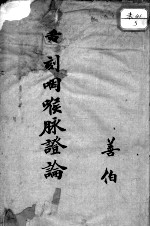 刻咽喉脉證論
善伯